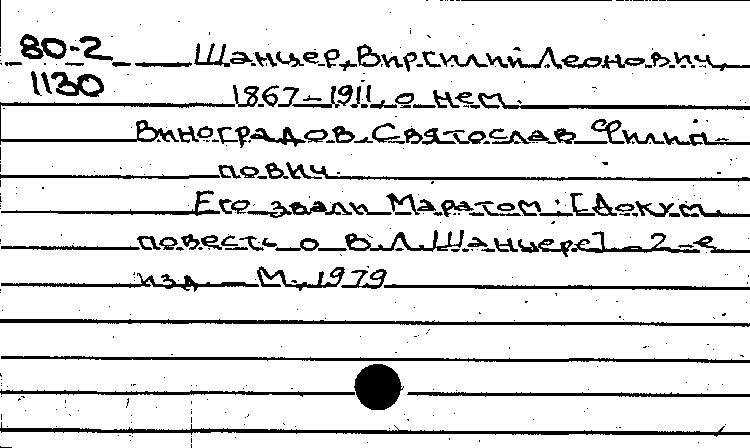 80-2 Шанцер, Виргилий Леонович,
1130 1867-1911, о нем.
Виноградов Святослав Филип-
пович.
Его звали Маратом: [Докум.
повесть о В.Л. Шанцере] - 2-е
изд. - М., 1979.